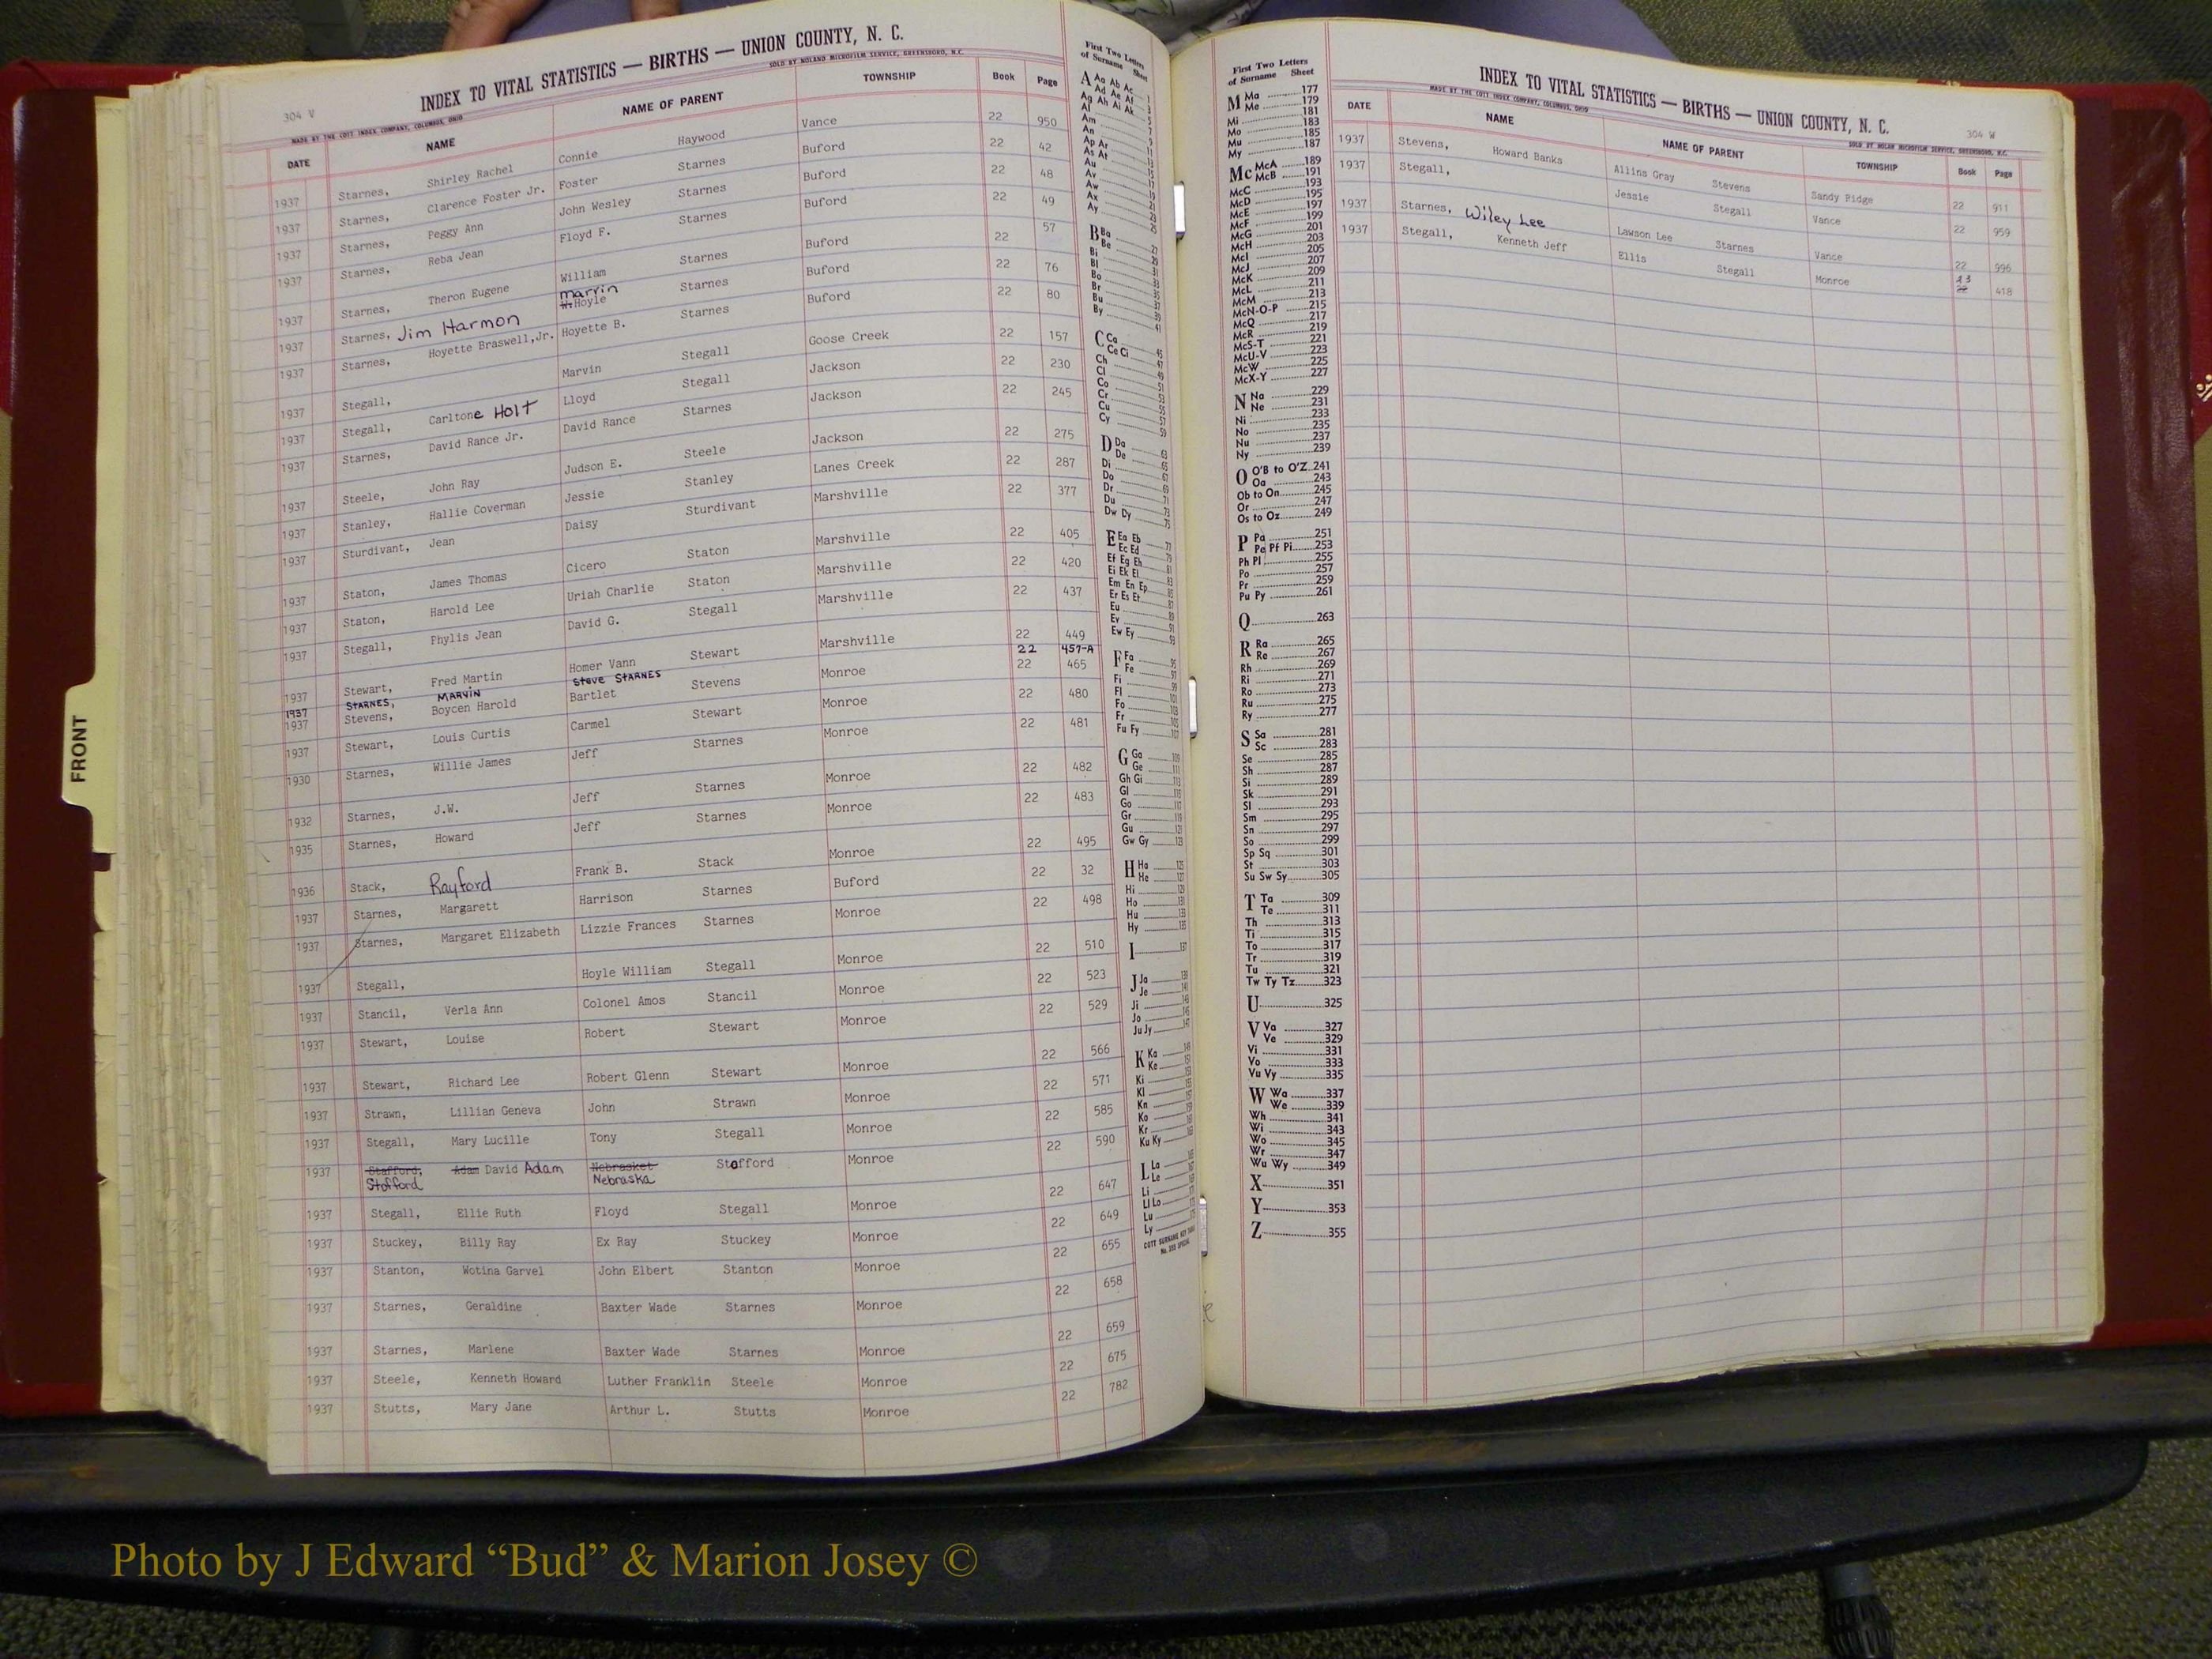 304 V
INDEX TO VITAL STATISTICS — BIRTHS — UNION COUNTY, N. C.
MADE BY THE COTT INDEX COMPANY, COLUMBUS, OHIO SOLD BY NOLAND MICROFILM SERVICE, GREENSBORO, N.C.
DATE NAME NAME OF PARENT TOWNSHIP Book Page
1937 Starnes, Shirley Rachel Connie Haywood Vance 22 950
1937 Starnes, Clarence Foster Jr. Foster Starnes Buford 22 42
1937 Starnes, Peggy Ann John Wesley Starnes Buford 22 48
1937 Starnes, Reba Jean Floyd F. Starnes Buford 22 49
1937 Starnes, Theron Eugene William Starnes Buford 22 57
1937 Starnes, Jim Harmon Marvin Hoyle Starnes Buford 22 76
1937 Starnes, Hoyette Braswell, Jr. Hoyette B. Starnes Buford 22 80
1937 Stegall, Marvin Stegall Goose Creek 22 157
1937 Stegall, Carltone Holt Lloyd Stegall Jackson 22 230
1937 Starnes, David Rance Jr. David Rance Starnes Jackson 22 245
1937 Steele, John Ray Judson E. Steele Jackson 22 275
1937 Stanley, Hallie Coverman Jessie Stanley Lanes Creek 22 287
1937 Sturdivant, Jean Daisy Sturdivant Marshville 22 377
1937 Staton, James Thomas Cicero Staton Marshville 22 405
1937 Staton, Harold Lee Uriah Charlie Staton Marshville 22 420
1937 Stegall, Phylis Jean David G. Stegall Marshville 22 437
1937 Stewart, Fred Martin Homer Vann Stewart Marshville 22 449
1937 STARNES, MARVIN Steve STARNES 22 457-A
1937 Stevens, Boycen Harold Bartlet Stevens Monroe 22 465
1937 Stewart, Louis Curtis Carmel Stewart Monroe 22 480
1930 Starnes, Willie James Jeff Starnes Monroe 22 481
1932 Starnes, J.W. Jeff Starnes Monroe 22 482
1935 Starnes, Howard Jeff Starnes Monroe 22 483
1936 Stack, Rayford Frank B. Stack Monroe 22 495
1937 Starnes, Margarett Harrison Starnes Buford 22 32
1937 Starnes, Margaret Elizabeth Lizzie Frances Starnes Monroe 22 498
1937 Stegall, Hoyle William Stegall Monroe 22 510
1937 Stancil, Verla Ann Colonel Amos Stancil Monroe 22 523
1937 Stewart, Louise Robert Stewart Monroe 22 529
1937 Stewart, Richard Lee Robert Glenn Stewart Monroe 22 566
1937 Strawn, Lillian Geneva John Strawn Monroe 22 571
1937 Stegall, Mary Lucille Tony Stegall Monroe 22 585
1937 Stafford, Adam David Adam Nebrasket Stofford Monroe 22 590
Stofford Nebraska
1937 Stegall, Ellie Ruth Floyd Stegall Monroe 22 647
1937 Stuckey, Billy Ray Ex Ray Stuckey Monroe 22 649
1937 Stanton, Wotina Garvel John Elbert Stanton Monroe 22 655
1937 Starnes, Geraldine Baxter Wade Starnes Monroe 22 658
1937 Starnes, Marlene Baxter Wade Starnes Monroe 22 659
1937 Steele, Kenneth Howard Luther Franklin Steele Monroe 22 675
1937 Stutts, Mary Jane Arthur L. Stutts Monroe 22 782
First Two Letters
of Surname Sheet
A Aa Ab Ac
Ad Ae Af
Ag Ah Ai Ak
Al
Am
An
Ap Ar
As At
Au
Av
Aw
Ax
Ay
B Ba
Be
Bi
Bl
Bo
Br
Bu
By
C Ca
Ce Ci
Ch
Cl
Co
Cr
Cu
Cy
D Da
De
Di
Do
Dr
Du
Dw Dy
E Ea Eb
Ec Ed
Ef Eg Eh
Ei Ek El
Em En Ep
Er Es Et
Eu
Ev
Ew Ey
F Fa
Fe
Fi
Fl
Fo
Fr
Fu Fy
G Ga
Ge
Gh Gi
Gl
Go
Gr
Gu
Gw Gy
H Ha
He
Hi
Ho
Hu
Hy
I
J Ja
Je
Ji
Jo
Ju Jy
K Ka
Ke
Ki
Kl
Kn
Ko
Kr
Ku Ky
L La
Le
Li
Ll Lo
Lu
Ly
First Two Letters
of Surname Sheet
M Ma 177
Me 179
Mi 181
Mo 183
Mu 185
My 187
Mc McA 189
McB 191
McC 193
McD 195
McE 197
McF 199
McG 201
McH 203
McI 205
McJ 207
McK 209
McL 211
McM 213
McN-O-P 215
McQ 217
McR 219
McS-T 221
McU-V 223
McW 225
McX-Y 227
N Na 229
Ne 231
Ni 233
No 235
Nu 237
Ny 239
O O'B to O'Z 241
Oa 243
Ob to On 245
Or 247
Os to Oz 249
P Pa 251
Pe Pf Pi 253
Ph Pl 255
Po 257
Pr 259
Pu Py 261
Q 263
R Ra 265
Re 267
Rh 269
Ri 271
Ro 273
Ru 275
Ry 277
S Sa 281
Sc 283
Se 285
Sh 287
Si 289
Sk 291
Sl 293
Sm 295
Sn 297
So 299
Sp Sq 301
St 303
Su Sw Sy 305
T Ta 309
Te 311
Th 313
Ti 315
To 317
Tr 319
Tu 321
Tw Ty Tz 323
U 325
V Va 327
Ve 329
Vi 331
Vo 333
Vu Vy 335
W Wa 337
We 339
Wh 341
Wi 343
Wo 345
Wr 347
Wu Wy 349
X 351
Y 353
Z 355
INDEX TO VITAL STATISTICS — BIRTHS — UNION COUNTY, N. C.
304 W
MADE BY THE COTT INDEX COMPANY, COLUMBUS, OHIO
DATE NAME NAME OF PARENT TOWNSHIP Book Page
1937 Stevens, Howard Banks Allins Gray Stevens Sandy Ridge 22 911
1937 Stegall, Jessie Stegall Vance 22 959
1937 Starnes, Wiley Lee Lawson Lee Starnes Vance 22 996
1937 Stegall, Kenneth Jeff Ellis Stegall Monroe 23 418
FRONT
Photo by J Edward “Bud” & Marion Josey ©